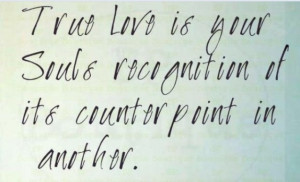 True Love is your
Souls recognition of
its counterpoint in
another.